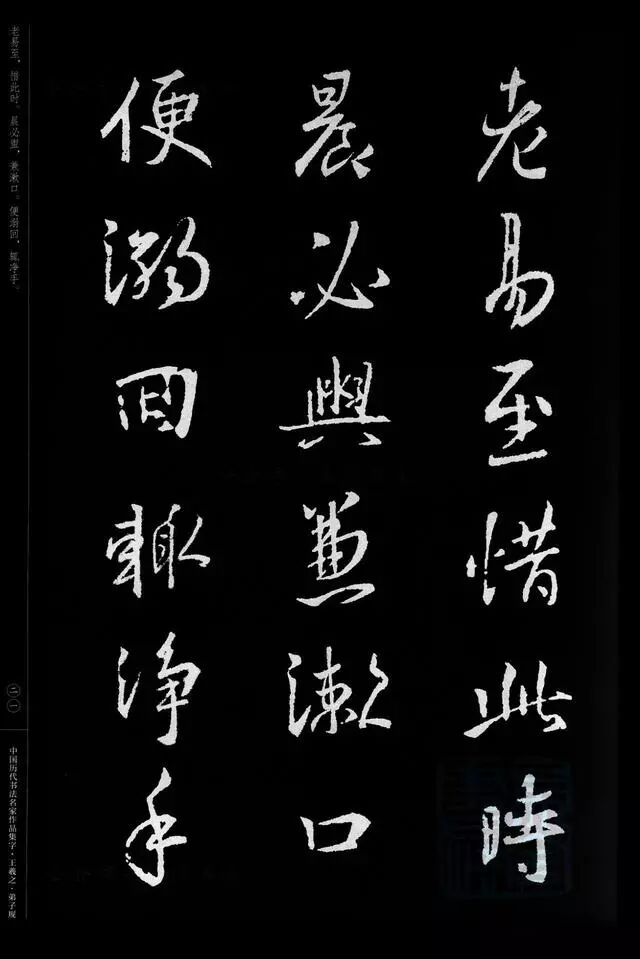 老易至惜此時
晨必興兼漱口
便溺回輙淨手
老易至，惜此时。晨必盥，兼漱口。便溺回，辄净手。
二一
中国历代书法名家作品集字·王羲之·弟子规